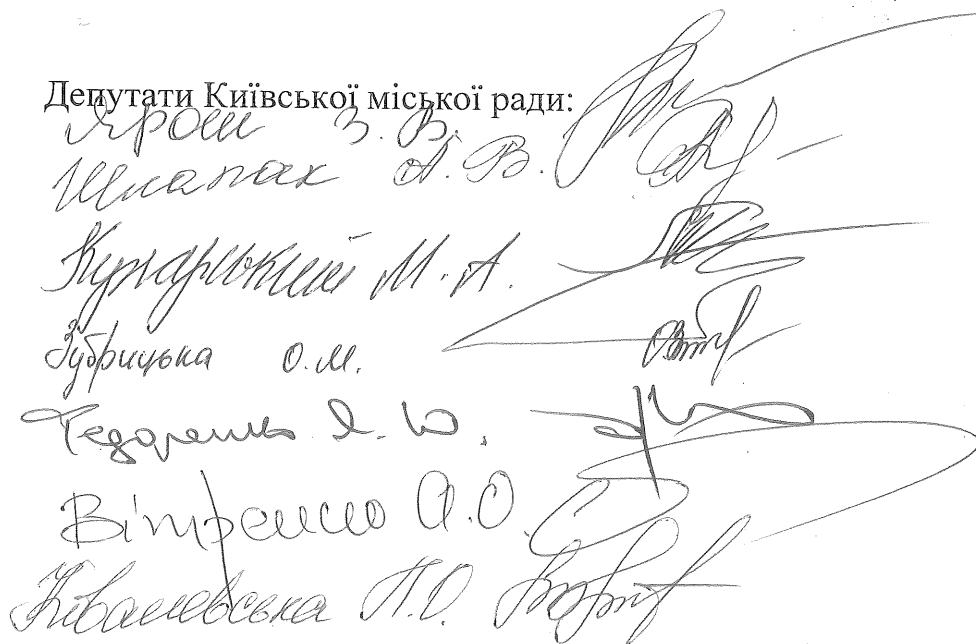 Депутати Київської міської ради:
Ярош З. В.
Шлапак А. В.
Кухарський М. А.
Зубрицька О. М.
Федоренко Я. Ю.
Вітренко А. О.
Ковалевська Л. О.